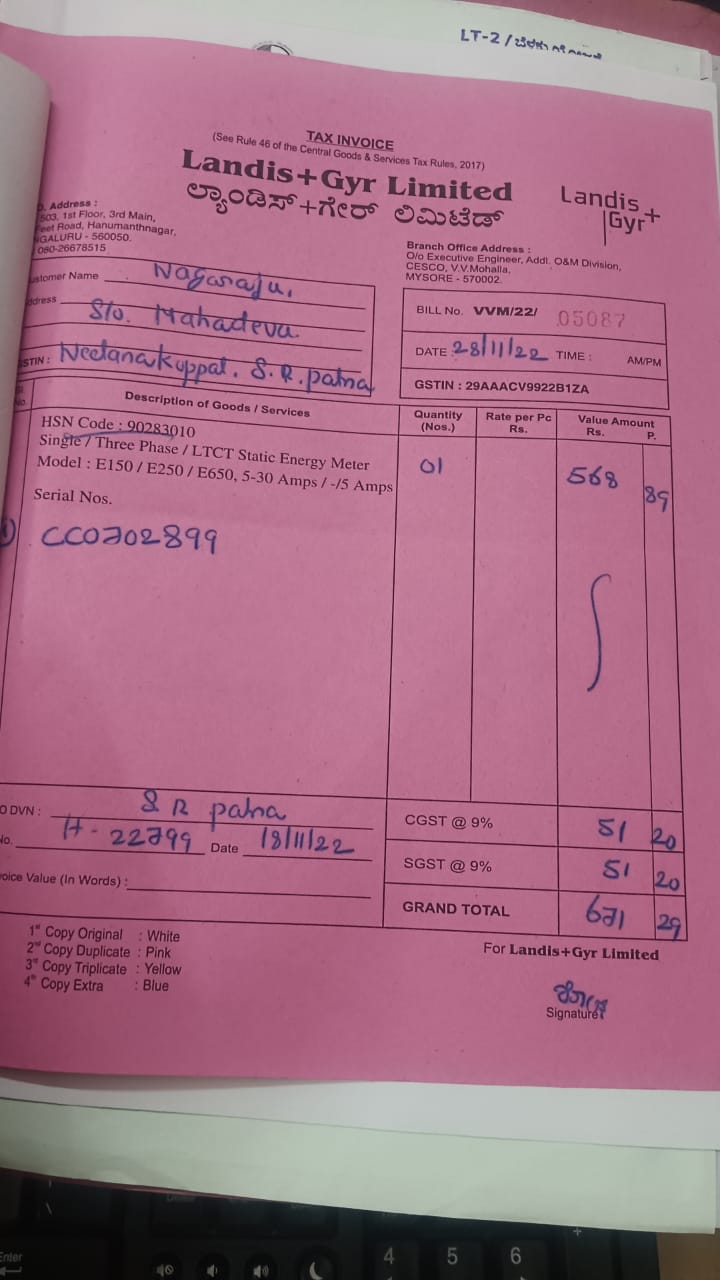 LT-2 /
TAX INVOICE
(See Rule 46 of the Central Goods & Services Tax Rules, 2017)
Landis+Gyr Limited
ಲ್ಯಾಂಡಿಸ್+ಗೇರ್ ಲಿಮಿಟೆಡ್
Landis+
Gyr
Address :
503, 1st Floor, 3rd Main,
eet Road, Hanumanthnagar,
GALURU - 560050.
080-26678515
Branch Office Address :
O/o Executive Engineer, Addl. O&M Division,
CESCO, V.V.Mohalla,
MYSORE - 570002.
ustomer Name Nagaraju,
ddress S/o. Mahadeva
STIN : Neelanakuppal. S.R.patna
BILL No. VVM/22/ 05087
DATE 28/11/22 TIME : AM/PM
GSTIN : 29AAACV9922B1ZA
No. Description of Goods / Services Quantity (Nos.) Rate per Pc Rs. Value Amount Rs. P.
HSN Code : 90283010
Single / Three Phase / LTCT Static Energy Meter
Model : E150 / E250 / E650, 5-30 Amps / -/5 Amps 01 568 89
Serial Nos.
1) CC0702899
O DVN : S R patna
No. H-22799 Date 18/11/22
voice Value (In Words) :
CGST @ 9% 51 20
SGST @ 9% 51 20
GRAND TOTAL 671 29
1st Copy Original : White
2nd Copy Duplicate : Pink
3rd Copy Triplicate : Yellow
4th Copy Extra : Blue
For Landis+Gyr Limited
Signature
Enter
4 5 6